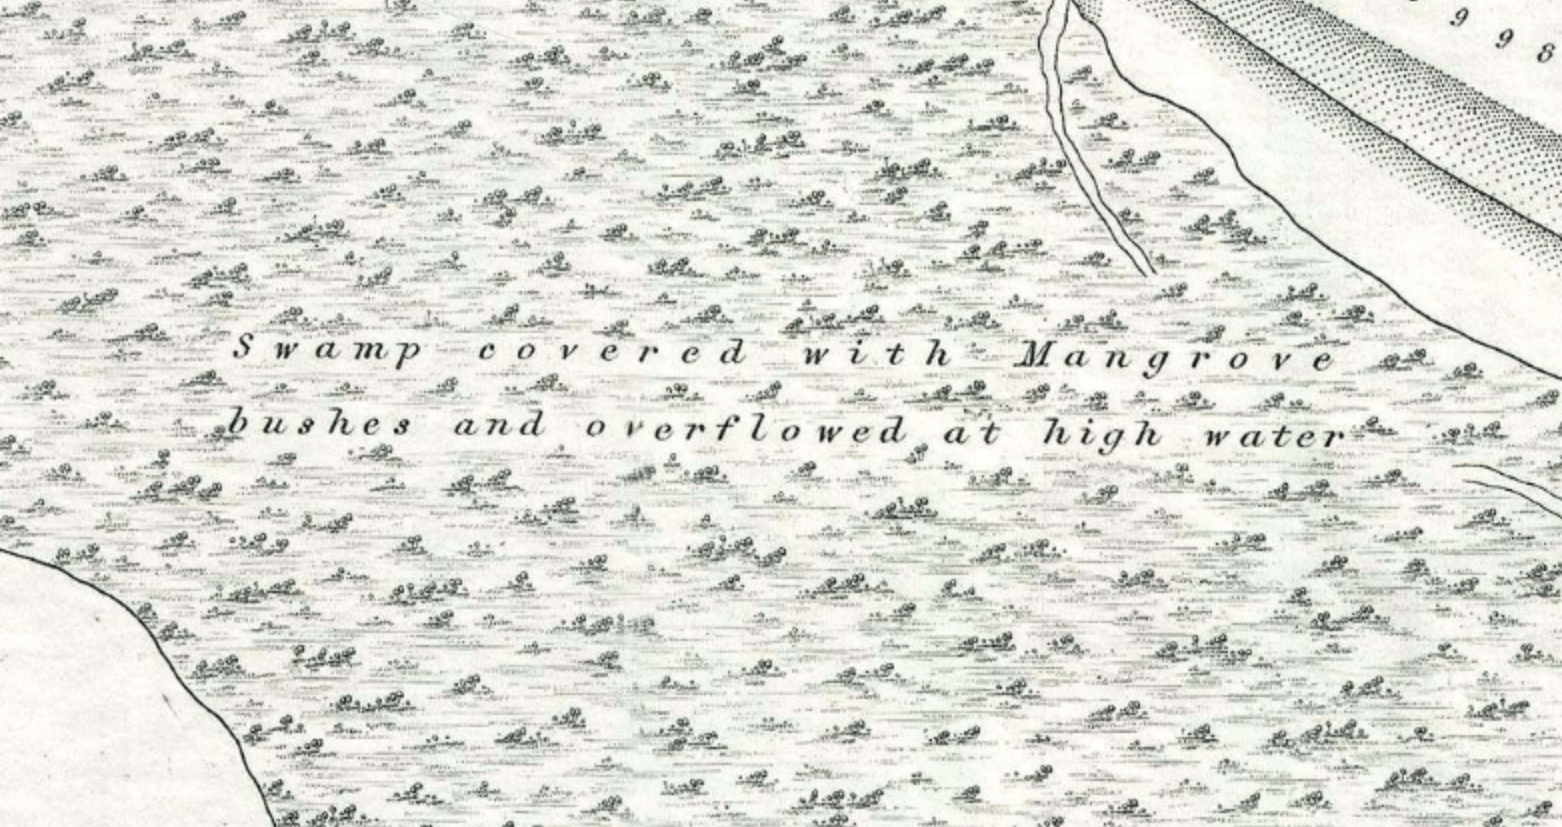 9 9 8
Swamp covered with Mangrove
bushes and overflowed at high water